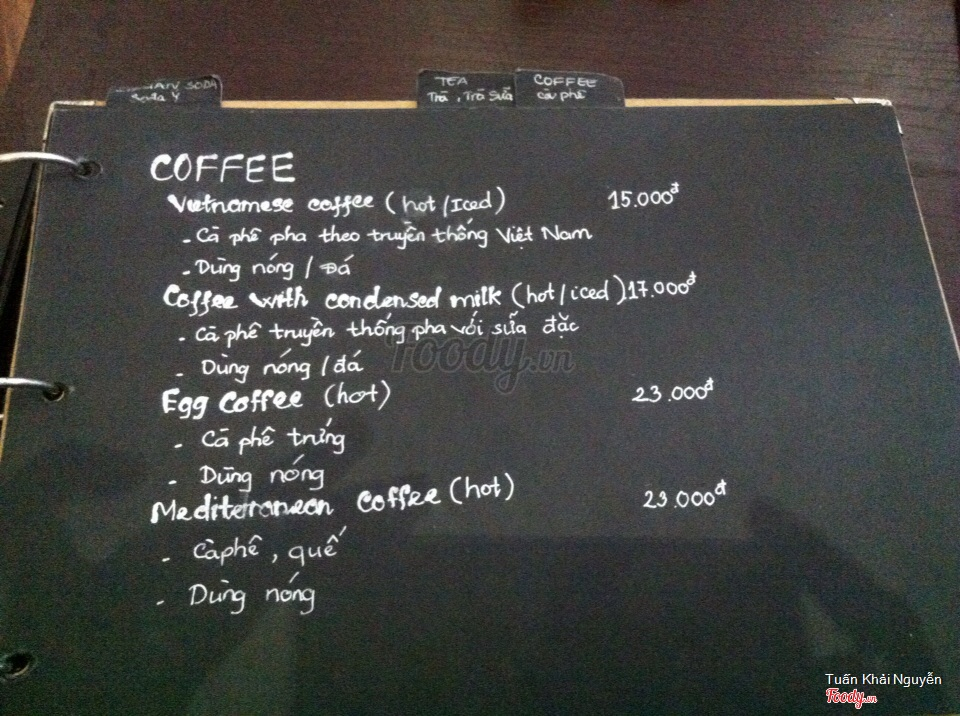 SODA
TEA
Trà, Trà Sữa
COFFEE
cà phê
COFFEE
Vietnamese coffee (hot/Iced) 15.000đ
- Cà phê pha theo truyền thống Việt Nam
- Dùng nóng / Đá
Coffee with condensed milk (hot/iced) 17.000đ
- Cà phê truyền thống pha với sữa đặc
- Dùng nóng / đá
Foody.vn
Egg Coffee (hot) 23.000đ
- Cà phê trứng
- Dùng nóng
Mediteranean Coffee (hot) 23.000đ
- Càphê, quế
- Dùng nóng
Tuấn Khải Nguyễn
Foody.vn